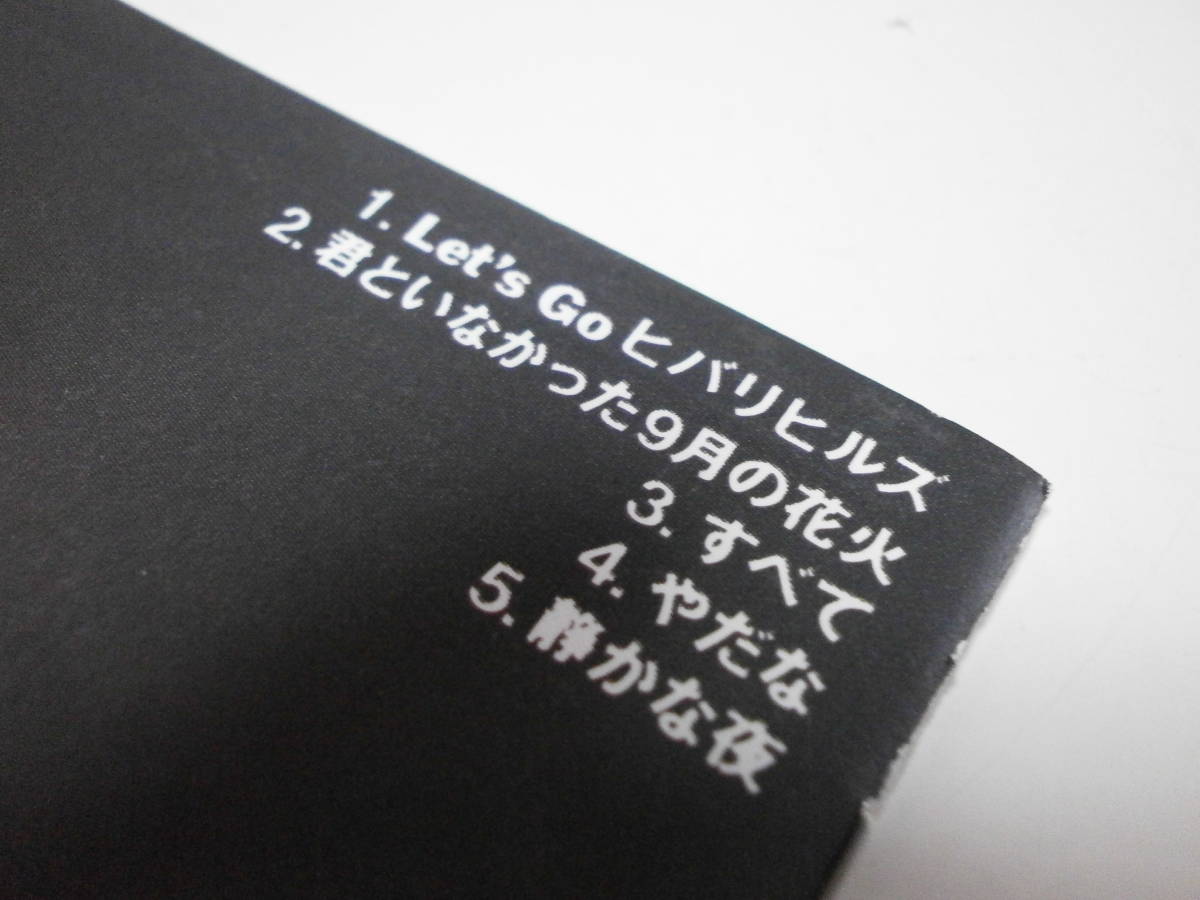 1. Let's Go ヒバリヒルズ
2. 君といなかった9月の花火
3. すべて
4. やだな
5. 静かな夜